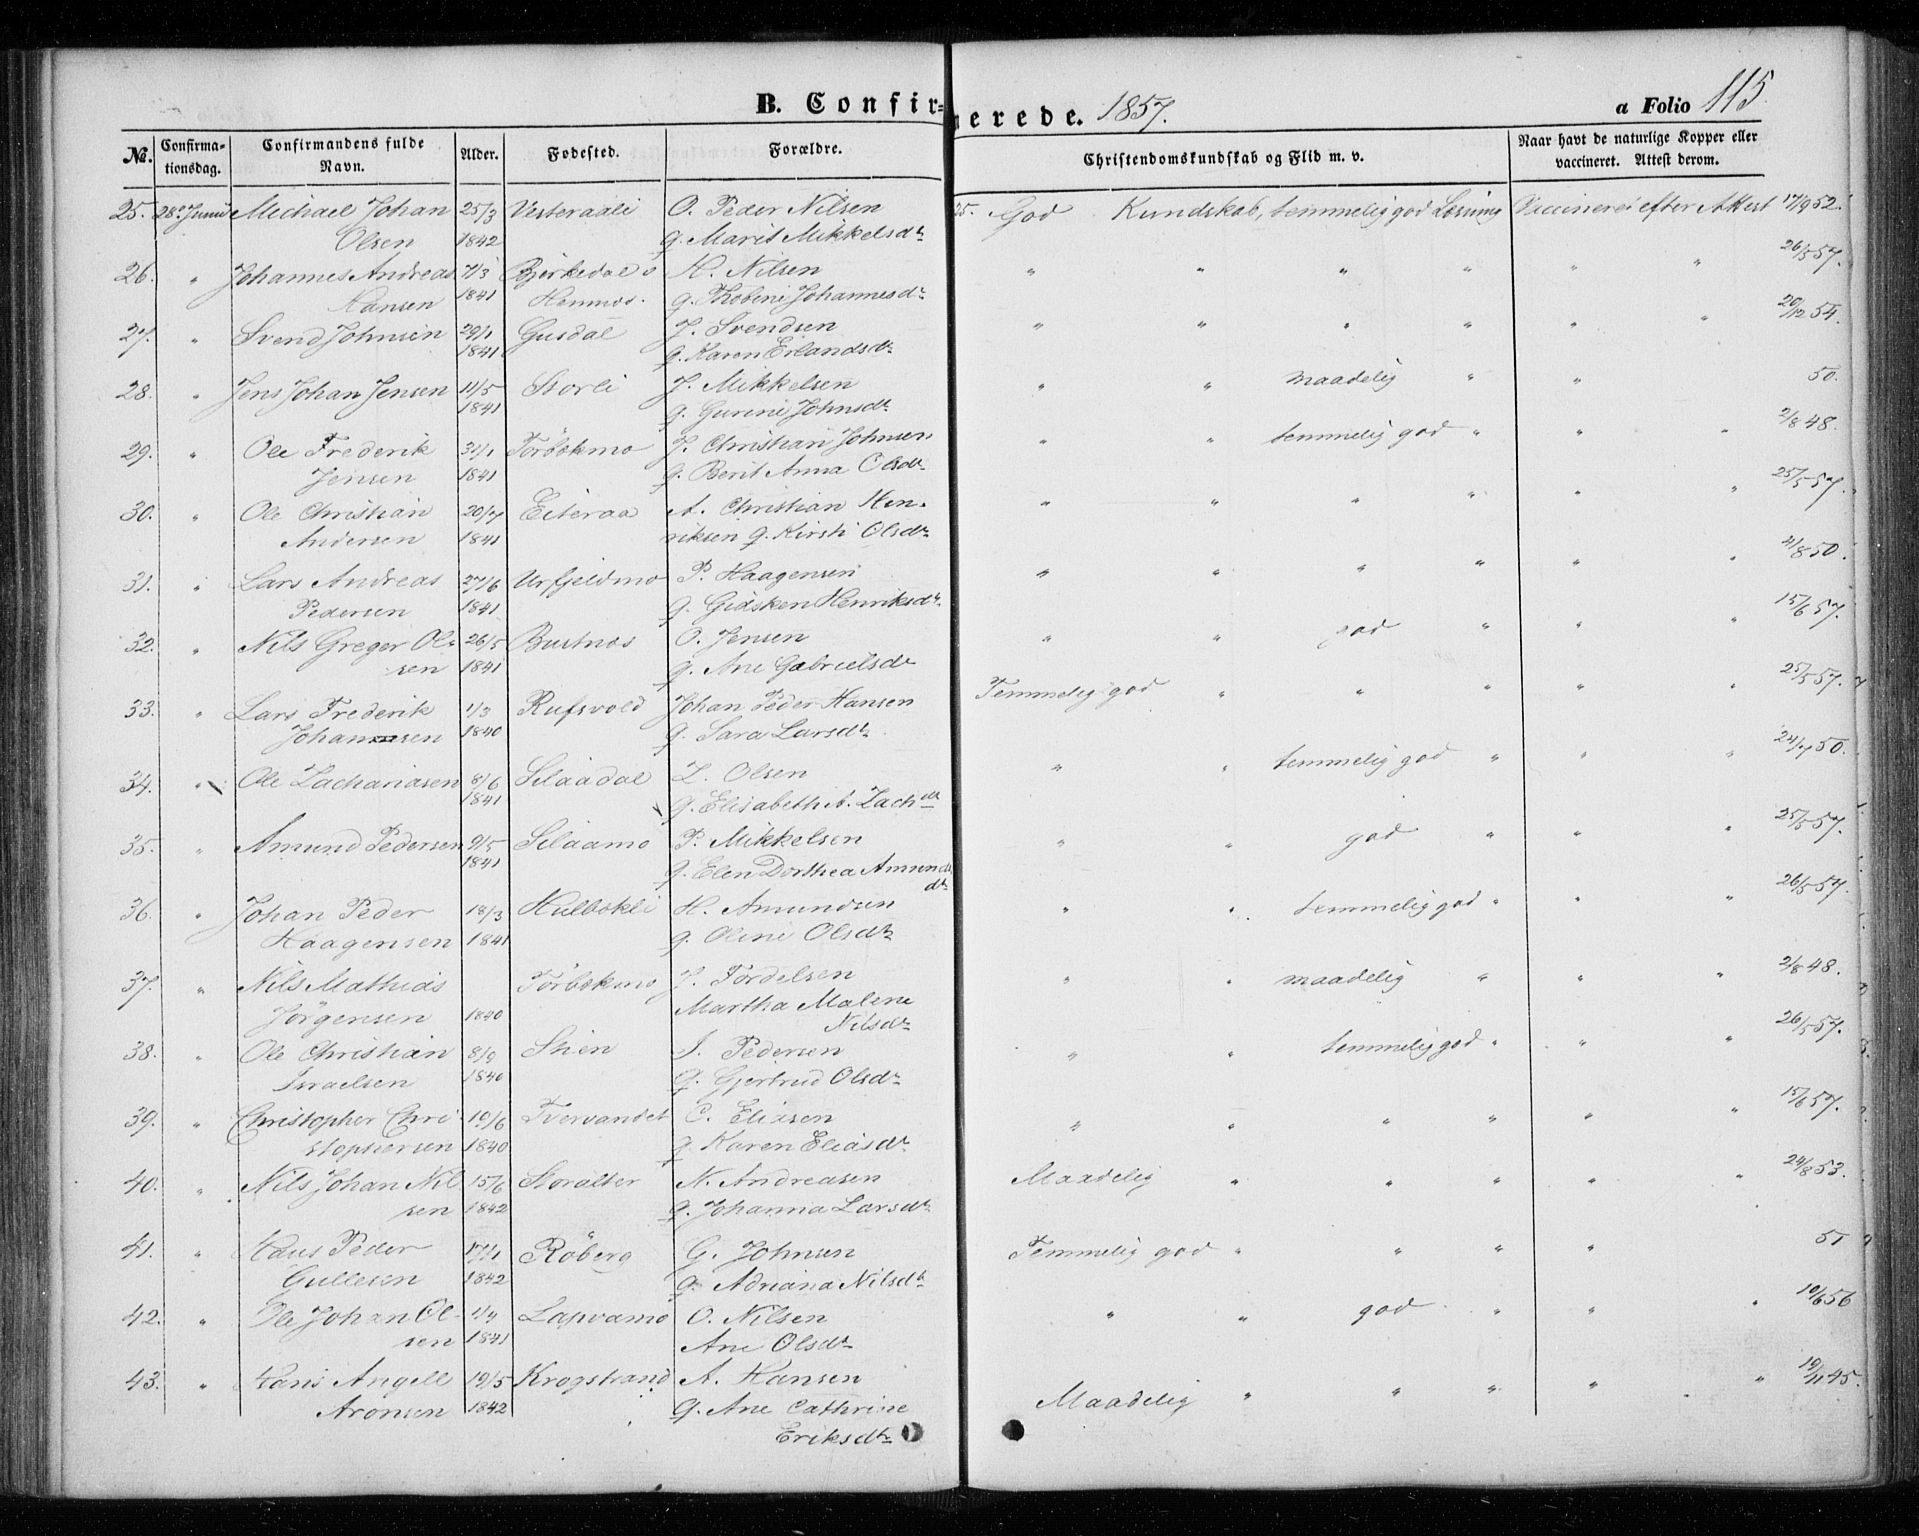 B. Confir=
merede. 1857.
a Folio 115.
No. Confirma-
tionsdag. Confirmandens fulde
Navn. Alder. Fødested. Forældre.
Christendomskundskab og Flid m. v. Naar havt de naturlige Kopper eller
vaccineret. Attest derom.
25. 28de Junii Michael Johan 25/3 Vesteraali O. Peder Nilsen 25. God Kundskab, temmelig god Læsning Vaccineret efter Attest 17/9 52.
Olsen 1842 g. Marit Mikkelsdr
26. " Johannes Andreas 7/3 Bjerkedal i H. Nilsen " " " " " " 26/5 57.
Hansen 1841 Hemnæs. g. Thobine Johannesdr
27. " Svend Johnsen 29/1 Gusdal J. Svendsen " " " " " " 20/12 54.
1841 g. Karen Erlandsdr
28. " Jens Johan Jensen 11/5 Storli J. Mikkelsen " " maadelig " " 50.
1841 g. Gurine Johnsdr
29. " Ole Frederik 31/1 Törbækmo J. Christian Johnsen " " temmelig god " " " 2/8 48.
Jensen 1841 g. Berit Anna Olsdr
30. " Ole Christian 20/7 Eiteraa A. Christian Hen- " " " " " " 25/5 57.
Andersen 1841 riksen g. Kirsti Olsdr
31. " Lars Andreas 27/6 Urfjeldmo P. Haagensen " " " " " " 21/8 50.
Pedersen 1841 g. Gidsken Henriksdr
32. " Nils Greger Ol- 26/5 Bustnæs O. Jensen " " god " " " 15/6 57.
sen 1841 g. Ane Gabrielsdr
33. " Lars Frederik 1/3 Rufsvold Johan Peder Hansen Temmelig god " " " " " 25/5 57.
Johansen 1840 g. Sara Larsdr
34. " Ole Zachariasen 8/6 Selaadal Z. Olsen " " temmelig god " " " 24/7 50.
1841 g. Elisabeth A. Zachdr
35. " Amund Pedersen 9/5 Selaamo P. Mikkelsen " " god " " " 25/5 57.
1841 g. Elen Dorthea Amunds
dr
36. " Johan Peder 18/3 Hulbækli H. Amundsen " " temmelig god " " " 26/5 57.
Haagensen 1841 g. Oline Olsdr
37. " Nils Mathias Törbækmo J. Tordelsen " " maadelig " " " 2/8 48.
Jörgensen 1840 Martha Malene
Nilsdr
38. " Ole Christian 8/9 Stien I. Pedersen " " temmelig god " " " 26/5 57.
Israelsen 1840 g. Gjertrud Olsdr
39. " Christopher Chri- 10/6 Tvervandet C. Eliasen " " " " " " 15/6 57.
stophersen 1840 g. Karen Eliasdr
40. " Nils Johan Nil 15/6 Storalter N. Andreasen Maadelig " " " " " 24/8 53.
sen 1842 g. Johanna Larsdr
41. " Hans Peder 17/1 Röberg G. Johnsen Temmelig god " " " " 51
Gullesen 1842 g. Adriana Nilsdr
42. " Ole Johan Ol- 1/9 Lapvamo O. Nilsen " " god " " " 10/6 56
sen 1841 Ane Olsdr
43. " Hans Angell 19/5 Krogstrand A. Hansen Maadelig " " " " " 19/11 45.
Aronsen 1842 g. Ane Cathrine
Eriksdr